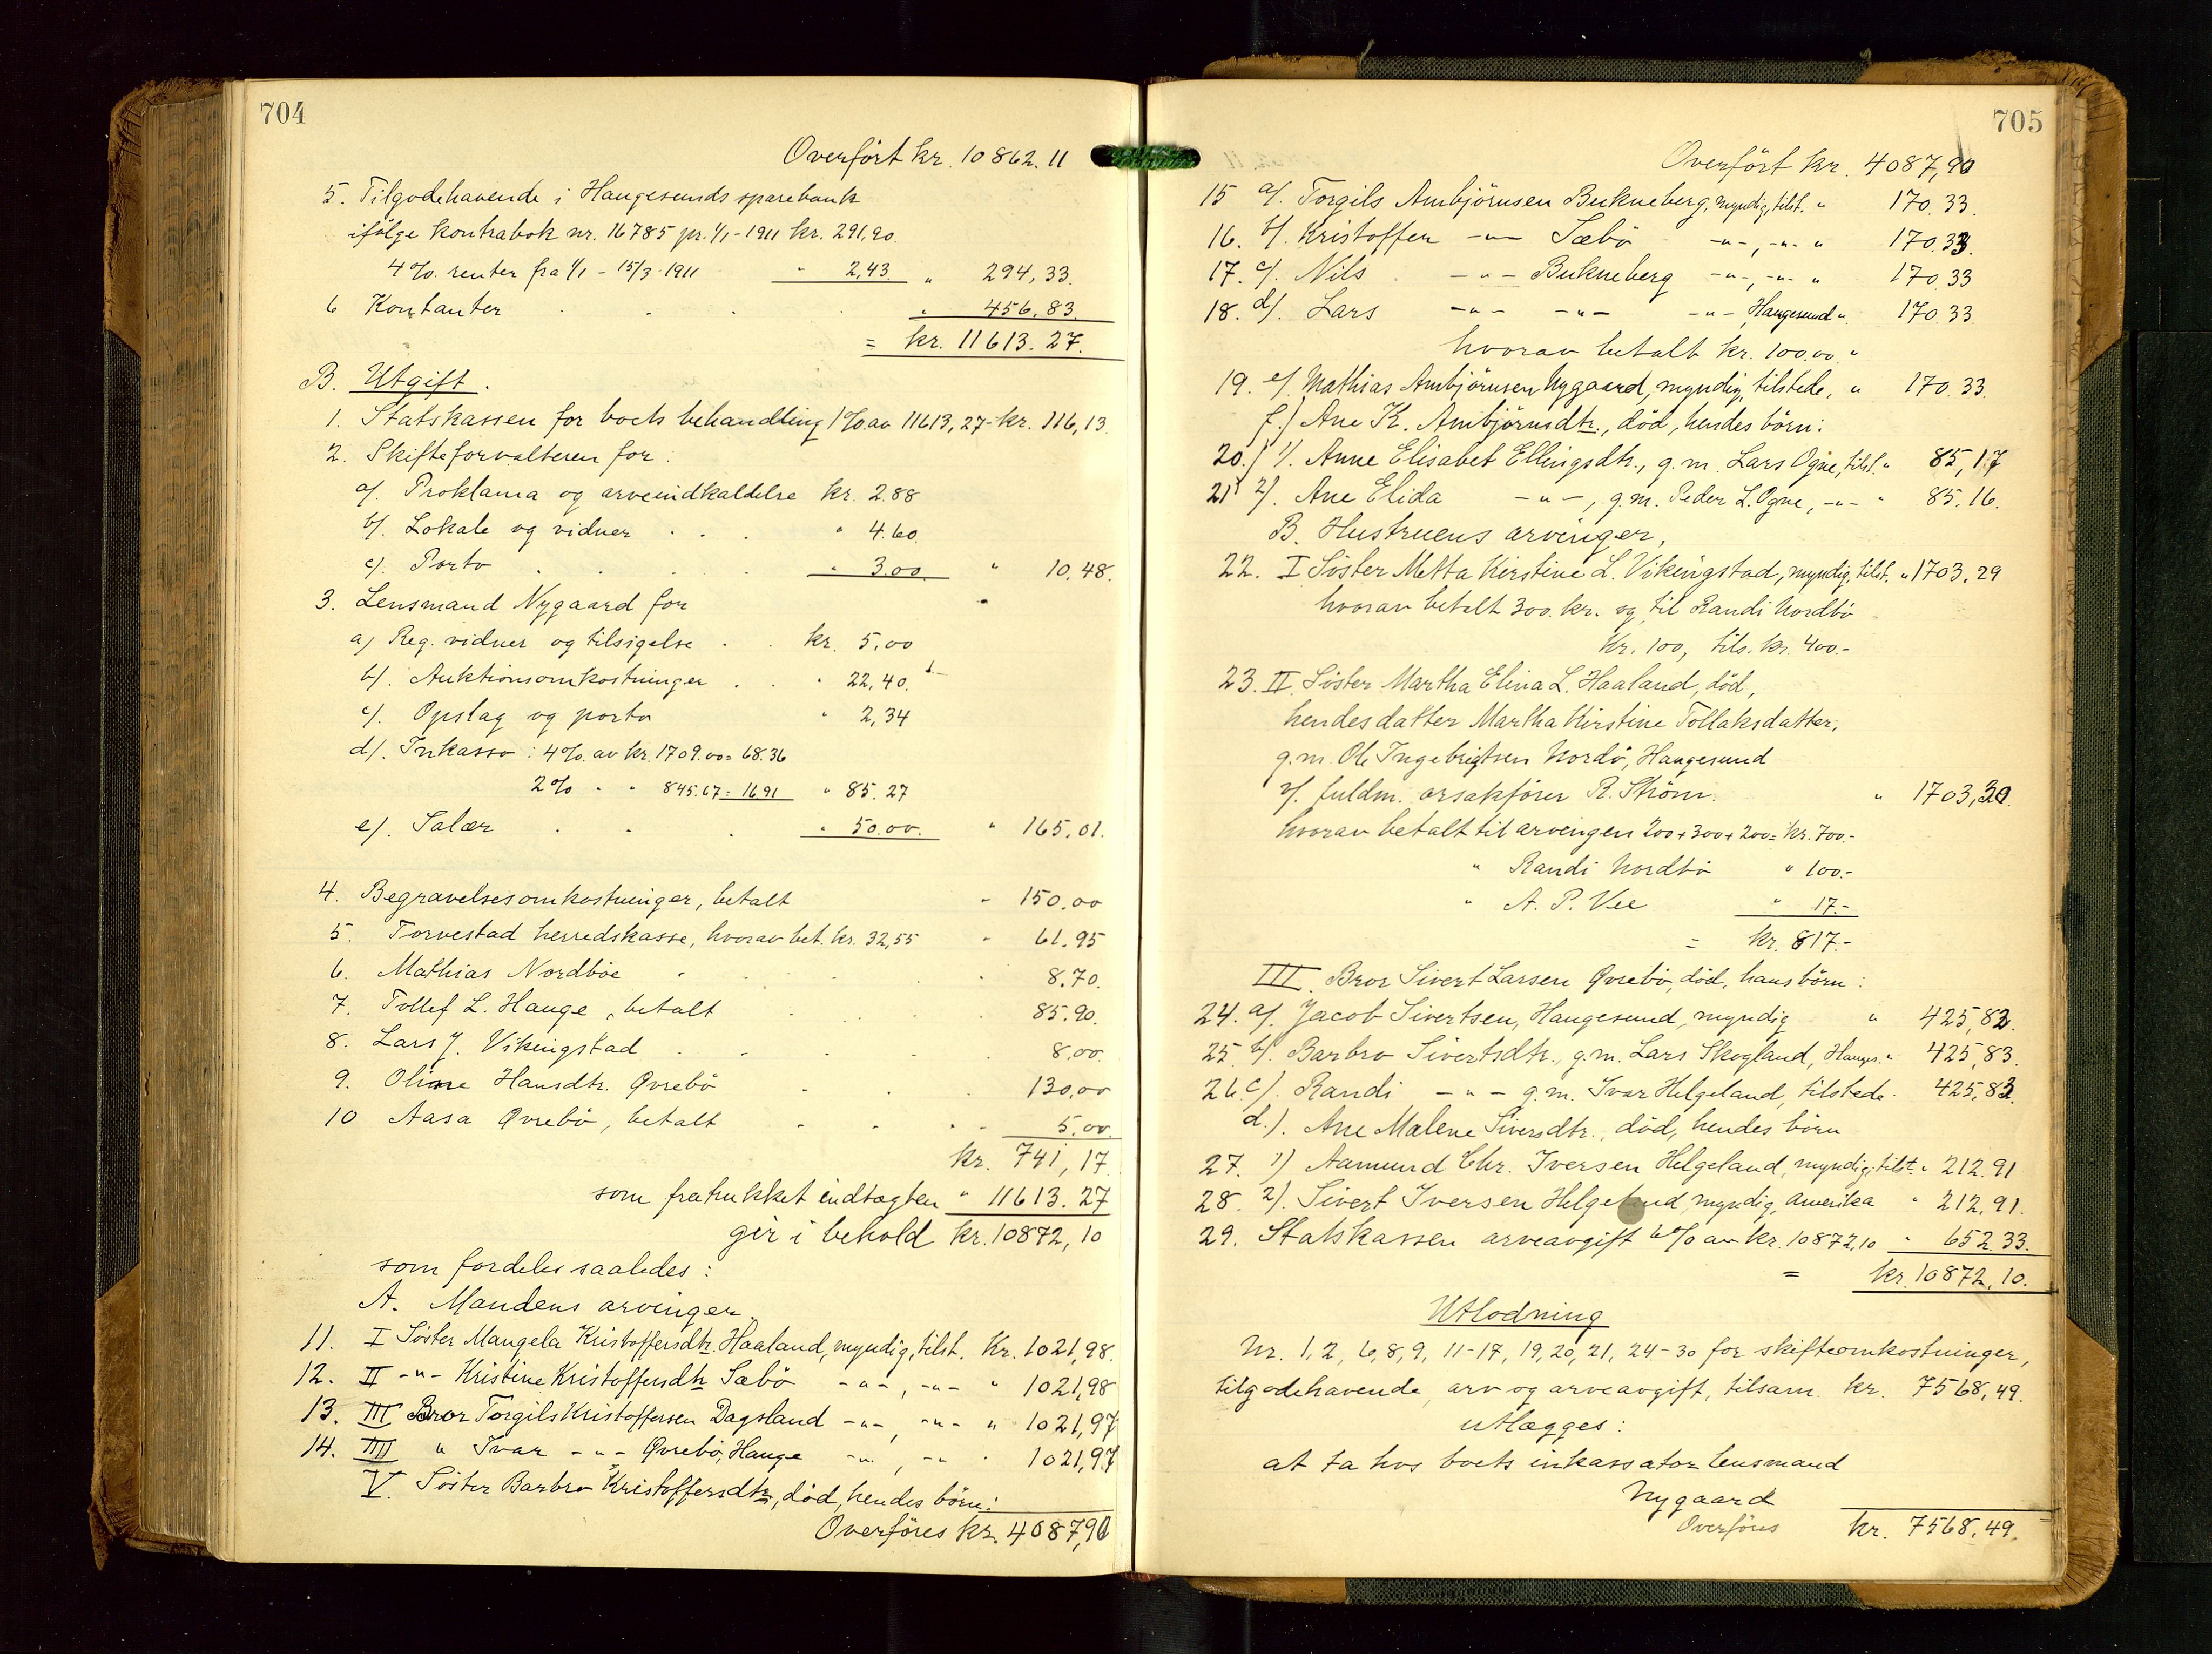 704
Overført kr. 10862.11
5. Tilgodehavende i Haugesunds sparebank
ifølge kontrabok nr. 16785 pr. 1/1-1911 kr. 291,90.
4%. renter fra 1/1 - 15/3-1911 " 2,43 " 294,33.
6 Kontanter . . . . " 456,83.
= kr. 11613.27.
B. Utgift.
1. Statskassen for boets behandling 1% av 11613,27- kr. 116,13.
2. Skifteforvalteren for:
a/. Proklama og arveindkaldelse kr. 2.88
b/. Lokale og vidner . . . " 4.60.
c/. Porto . . . . " 3.00. " 10,48.
3. Lensmand Nygaard for
a/ Reg. vidner og tilsigelse . . kr. 5,00
b/. Auktionsomkostninger . . " 22,40.
c/. Opslag og porto " 2,34
d/. Inkasso: 4% av kr. 1709.00= 68.36
2% " " 845.67= 16 91 " 85.27
e/. Salær . . . " 50.00. " 165,01.
4. Begravelsesomkostninger, betalt " 150,00
5. Torvestad herredskasse, hvorav bet. kr. 32,55 " 61.95
6. Mathias Nordbøe " . . . . 8.70.
7. Tollef L. Hauge, betalt . . . . 85.90.
8. Lars J. Vikingstad . . . . . 8,00.
9. Oline Hansdtr. Øvrebø . . . 130,00
10 Aasa Øvrebø, betalt . . . . 5,00.
kr. 741,17
som fratrukket indtægten " 11613.27
gir i behold kr. 10872,10
som fordeles saaledes:
A. Mandens arvinger.
11. I Søster Mangela Kristoffersdtr. Haaland, myndig, tilst. Kr. 1021,98.
12. II -"- Kristine Kristoffersdtr Sæbö -"-, -"- " 1021,98
13. III Bror Torgils Kristoffersen Dagsland -"-, -"- " 1021,97
14. IIII " Ivar -"- Øvrebø, Hauge -"-, -"- " 1021,97
V. Søster Barbro Kristoffersdtr, død, hendes børn:
Overføres kr. 4087,90
705
Overført kr. 4087,90
15 a/. Torgils Ambjörnsen Bukneberg, myndig, tilst. " 170.33.
16. b/. Kristoffer -"- Sæbö -"-, -"- " 170.33.
17. c/. Nils -"- Bukneberg -"-, -"- " 170.33
18. d/. Lars -"- -"- -"- Haugesund " 170.33
hvorav betalt kr. 100.00 "
19. e/. Mathias Ambjörnsen Nygaard, myndig, tilstede, " 170.33.
f.) Ane K. Ambjörnsdtr., död, hendes børn:
20./ 1/. Anne Elisabet Ellingsdtr., g.m. Lars Ogne, tilst. " 85,17
21 2/. Ane Elida -"-, g.m. Peder L. Ogne, -"- " 85.16.
B. Hustruens arvinger,
22. I Søster Metta Kirstine L. Vikingstad, myndig, tilst. " 1703,29
hvorav betalt 300. kr. og til Randi Nordbö
Kr. 100, tils. kr. 400.-
23. II. Søster Martha Elina L. Haaland, död,
hendes datter Martha Kirstine Tollaksdatter,
g.m. Ole Ingebrigtsen Nordö, Haugesund
v/. fuldm. orsakfører R. Strøm. " 1703,30.
hvorav betalt til arvingen 200+300+200= kr. 700.-
" Randi Nordbö " 100.-
" A. P. Vee " 17.-
= kr. 817.-
III. Bror Sivert Larsen Øvrebö, död, hans børn:
24. a/. Jacob Sivertsen, Haugesund, myndig " 425,83.
25. b/. Barbro Sivertsdtr., g.m. Lars Skogland, Hauges. " 425,83.
26. c/. Randi -"- g.m. Ivar Helgeland, tilstede. 425,83.
d.). Ane Malene Siversdtr., död, hendes børn
27. 1) Aamund Chr. Iversen Helgeland, myndig, tilst. " 212.91
28. 2/. Sivert Iversen Helgeland, myndig, Amerika " 212,91.
29. Statskassen arveavgift 6% av kr. 10872,10 " 652.33.
= kr. 10872,10.
Utlodning
Nr. 1, 2, 6, 8, 9, 11-17, 19, 20, 21, 24-30 for skifteomkostninger,
tilgodehavende, arv og arveavgift, tilsam. kr. 7568,49.
utlægges:
at ta hos boets inkassator lensmand
Nygaard
Overføres kr. 7568,49.